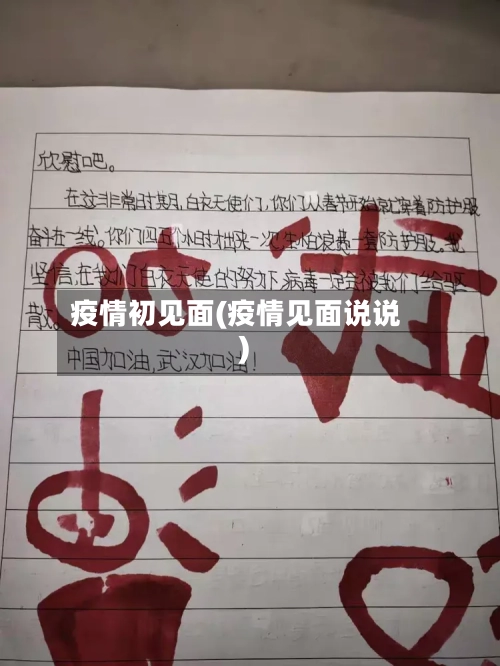 欣慰吧。
在这非常时期,白衣天使们,你们从春节开始就穿着防护服
奋斗在一线。你们四五个小时才出来一次,生怕浪费一套防护服。我
坚信,在我们白衣天使的努力下,病毒一定会被我们给驱
散。
疫情初见面(疫情见面说说
)
中国加油,武汉加油!